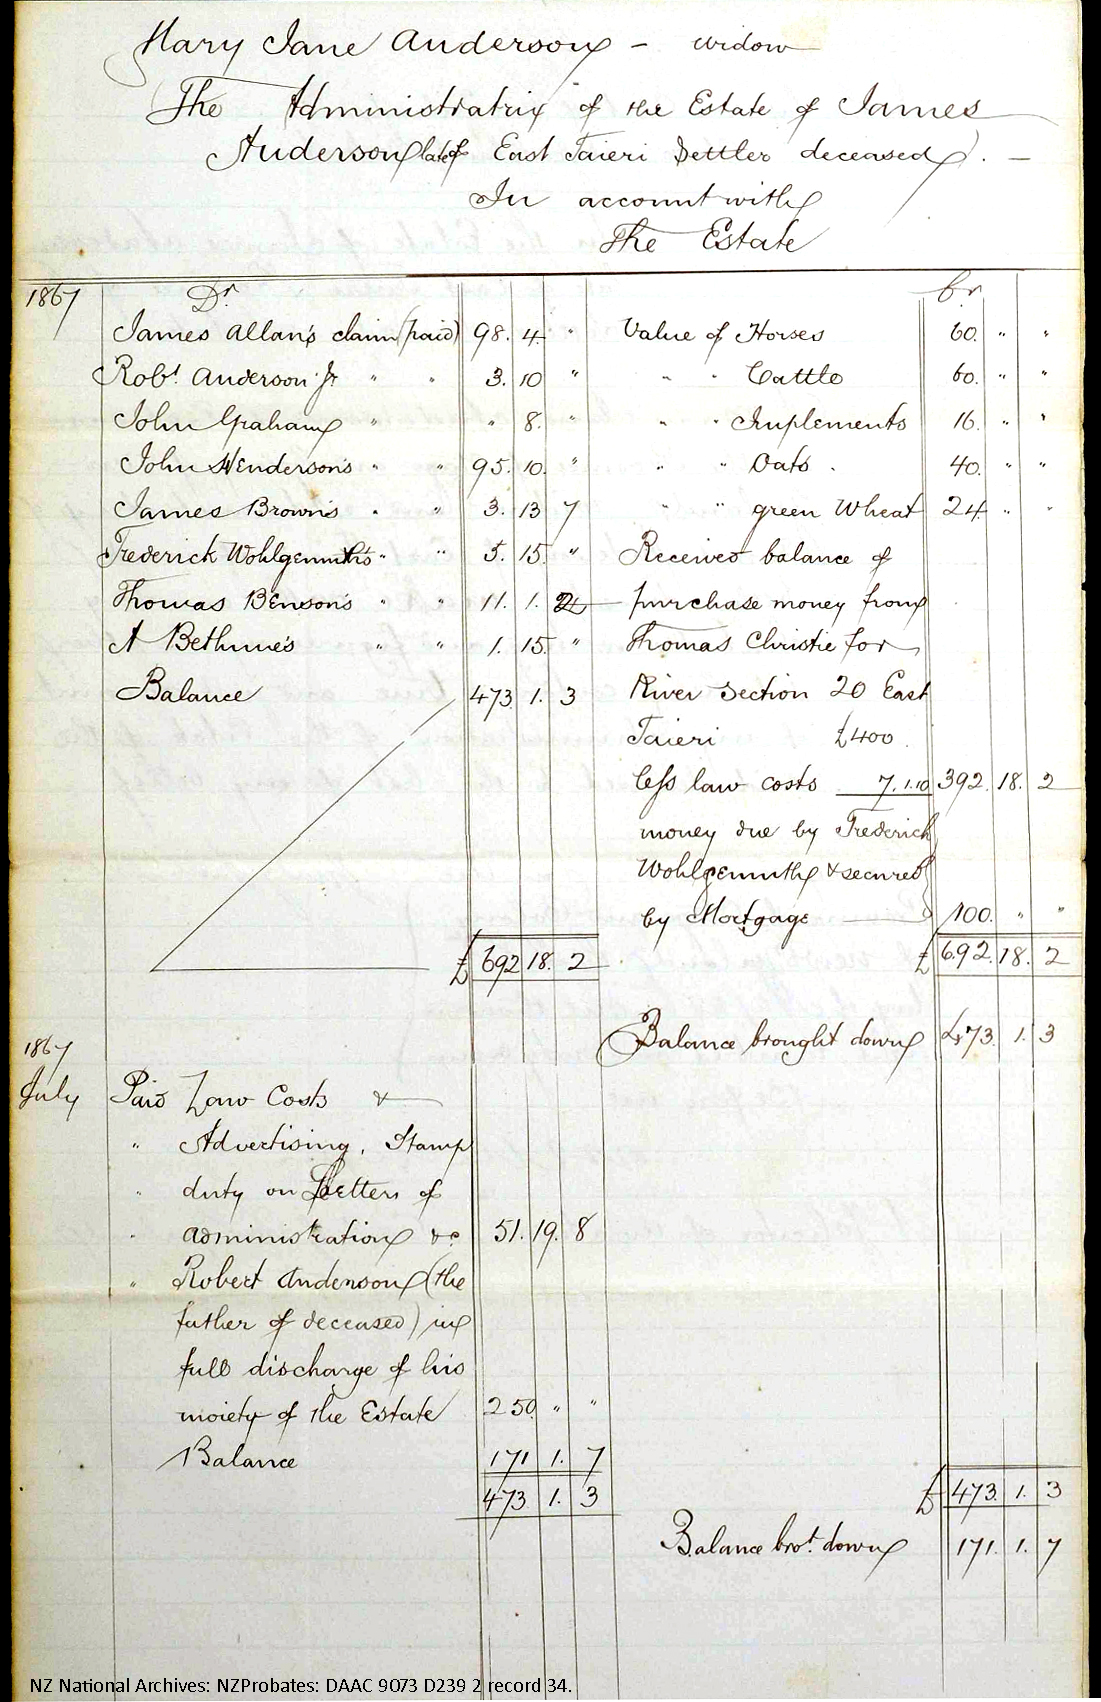 Mary Jane Anderson – widow
The Administratrix of the Estate of James
Anderson late of East Taieri Settler deceased. –
In account with
The Estate
1867 Dr Cr
James Allan's claim (paid) 98. 4 " Value of Horses 60. " "
Robt. Anderson Jr " " 3. 10 " " " Cattle 60. " "
John Graham " " 8. " " " Implements 16. " "
John Henderson's " " 95. 10. " " " Oats. 40. " "
James Brown's " " 3. 13 7 " " green Wheat 24. " "
Frederick Wohlgemuth's " " 5. 15. " Received balance of
Thomas Benson's " " 11. 1. 2 purchase money from
A Bethune's " " 1. 15. " Thomas Christie for
Balance 473 1. 3 River Section 20 East
Taieri £400.
less law costs 7. 1. 10 392. 18. 2
money due by Frederick
Wohlgemuth & secured
by Mortgage 100. " "
£ 692 18. 2 £ 692. 18. 2
Balance brought down 473. 1. 3
1867
July Paid Law Costs &
" Advertising, Stamp
" duty on Letters of
" administration &c 51. 19. 8
" Robert Anderson (the
father of deceased) in
full discharge of his
moiety of the Estate 250 " "
Balance 171 1. 7
473 1. 3 £ 473. 1. 3
Balance brot. down 171. 1. 7
NZ National Archives: NZProbates: DAAC 9073 D239 2 record 34.